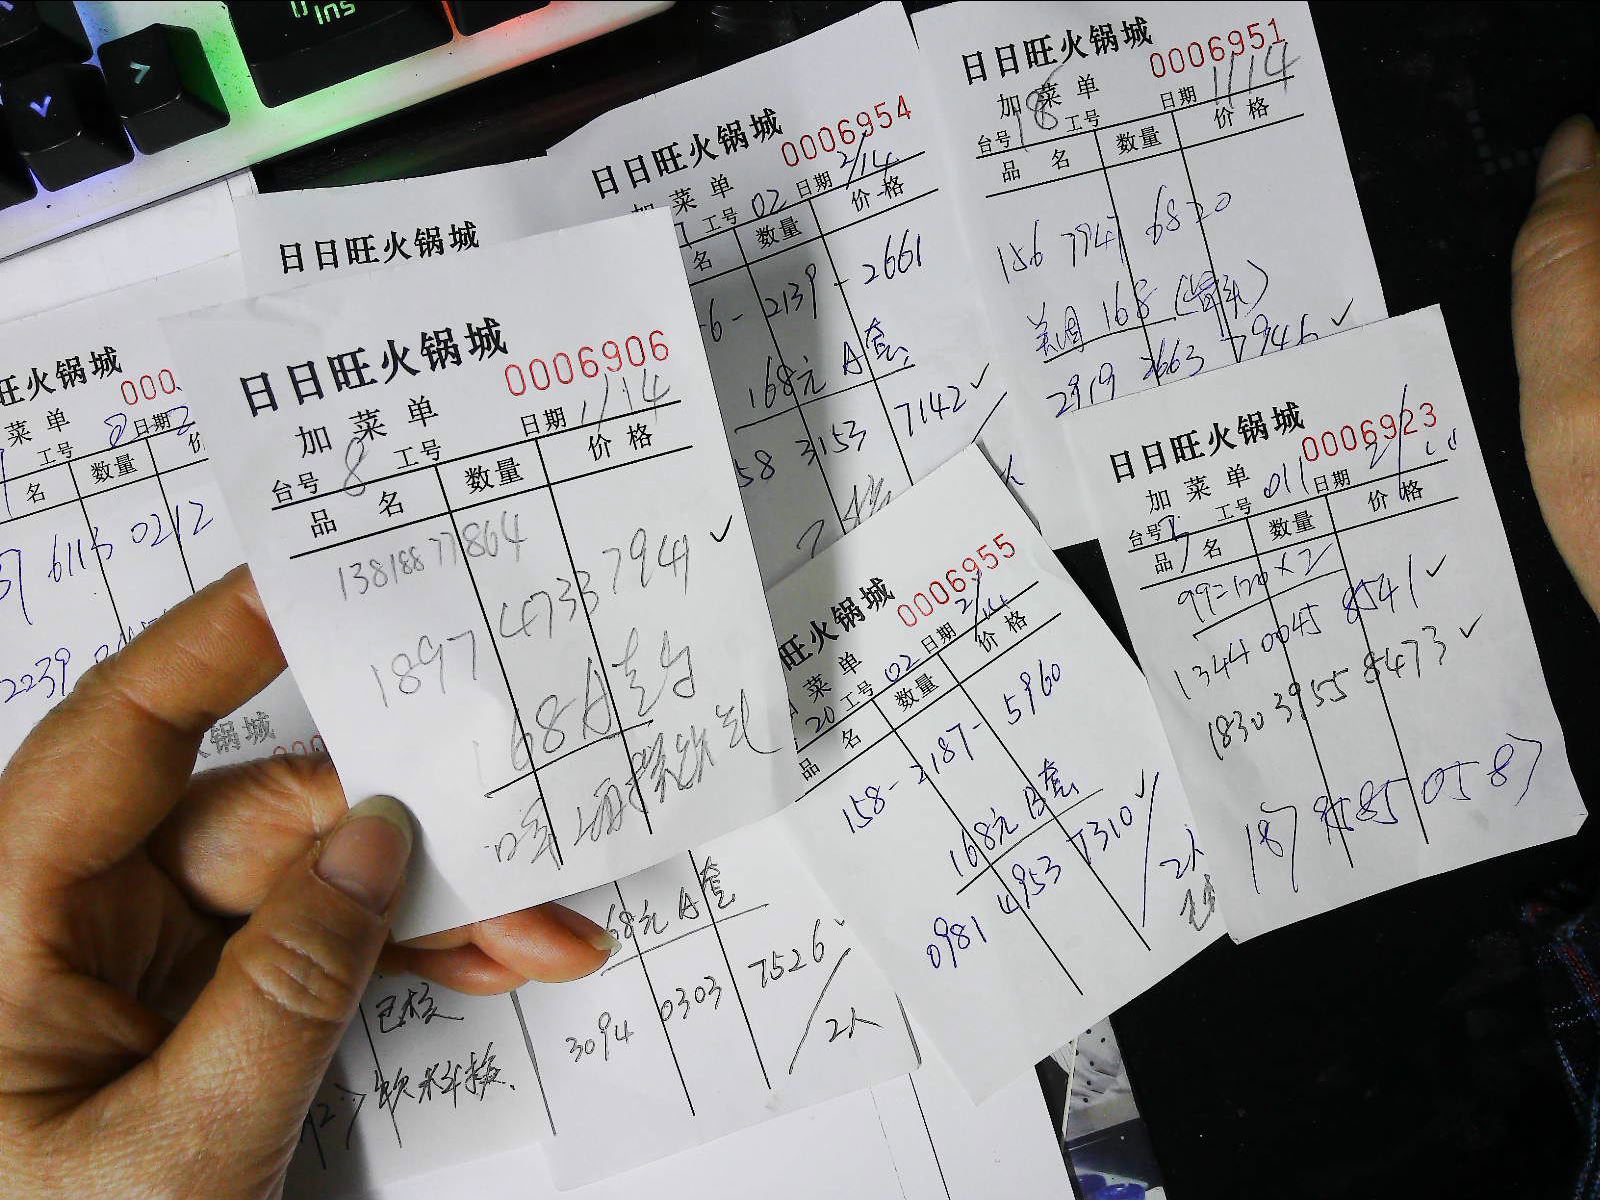 Ins
0
日日旺火锅城
0006951
加菜单
日期 1/14
台号 18 工号
品 名 数量 价格
156 7947 6820
美团 168 (骨头)
2919 2663 7946 ✓
日日旺火锅城
0006954
加菜单
工号 02 日期 2/14
名 数量 价格
-6- 2139-2661
168元 A套
58 3153 7142 ✓
日日旺火锅城
旺火锅城
000
菜单
工号 日期
名 数量 价
6115 0212
2239
日日旺火锅城
0006906
加菜单
日期 1/14
台号 8 工号
品 名 数量 价格
13818877864
1897 4733 7941 ✓
168A套
日日旺火锅城
0006923
加菜单
台号 工号 011 日期
品 名 数量 价格
99=100×2
1344 0045 8541 ✓
1830 3955 8473 ✓
187 8585 0587
旺火锅城
0006955
菜单
20 工号 02 日期 2/14
品 名 数量 价格
158-2187-5960
168元 B套
0981 4953 7310 ✓
2人
火锅城
68元 A套
3094 0303 7526 ✓
2人
已核